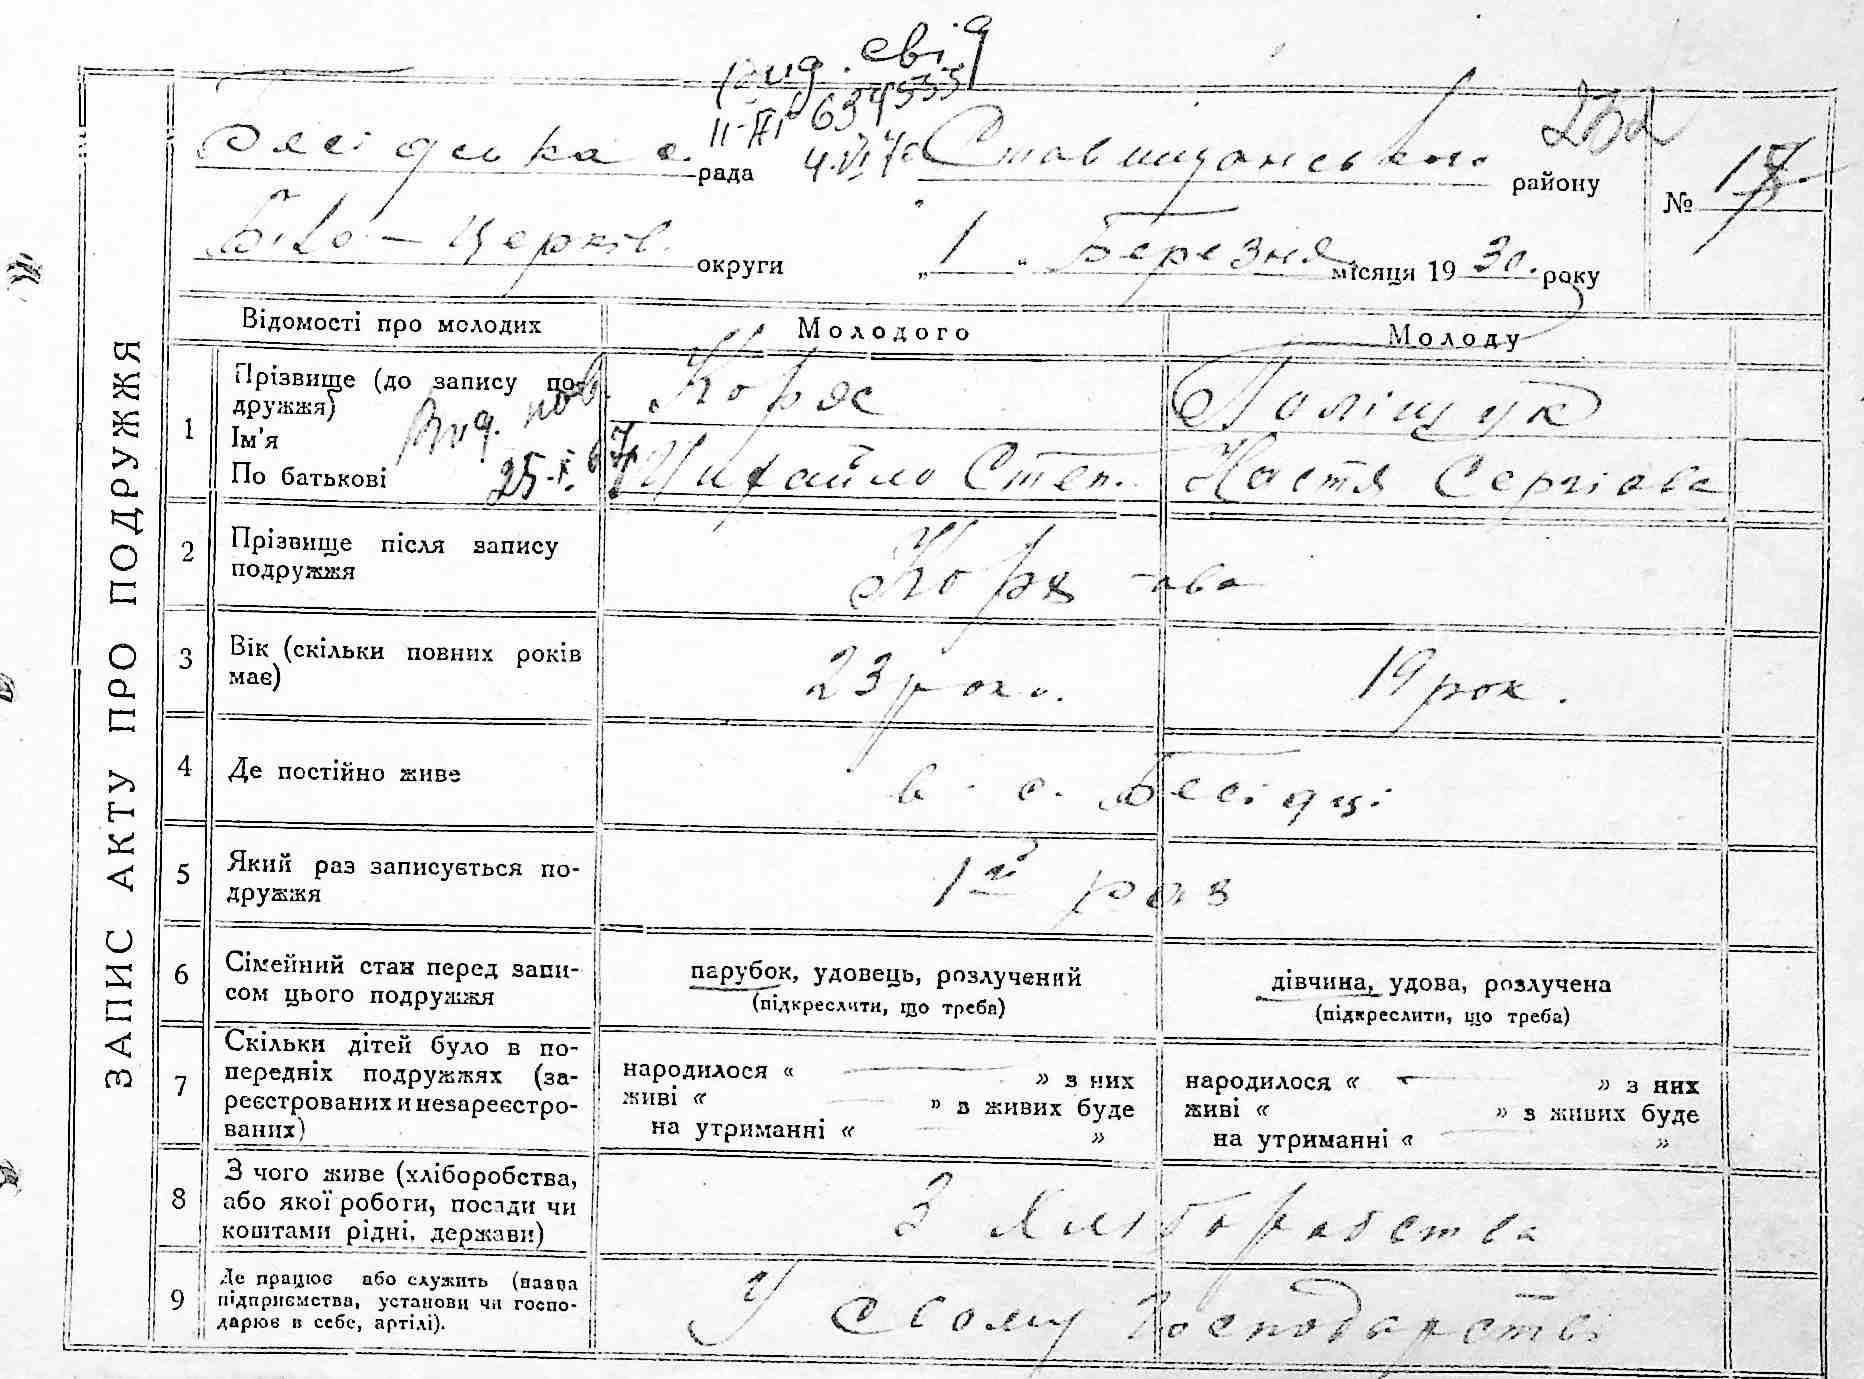 Вид. свід
II-ЯГ 634533
4.VI 7
232
Бесідська с. рада Ставищанського району
№ 17
Біло-Церків. округи „ 1 " Березня місяця 19 30. року
ЗАПИС АКТУ ПРО ПОДРУЖЖЯ
Відомості про молодих Молодого Молоду
1 Прізвище (до запису по-
дружжя) Коряс Поліщук
Ім'я
По батькові Михайло Степ. Настя Сергіовна
Вид. пов.
25.X.67
2 Прізвище після запису
подружжя Коряс -ова
3 Вік (скільки повних років
має) 23 роки. 19 рок.
4 Де постійно живе в с. Бесідці
5 Який раз записується по-
дружжя 1й раз
6 Сімейний стан перед запи-
сом цього подружжя
парубок, удовець, розлучений
(підкреслити, що треба)
дівчина, удова, розлучена
(підкреслити, що треба)
7 Скільки дітей було в по-
передніх подружжях (за-
реєстрованих и незареєстро-
ваних)
народилося « — » з них
живі « — » з живих буде
на утриманні « — »
народилося « — » з них
живі « » з живих буде
на утриманні « — »
8 З чого живе (хліборобства,
або якої роботи, посади чи
коштами рідні, держави)
З хліборобства
9 Де працює або служить (назва
підприємства, установи чи госпо-
дарює в себе, артілі).
У свому господарстві